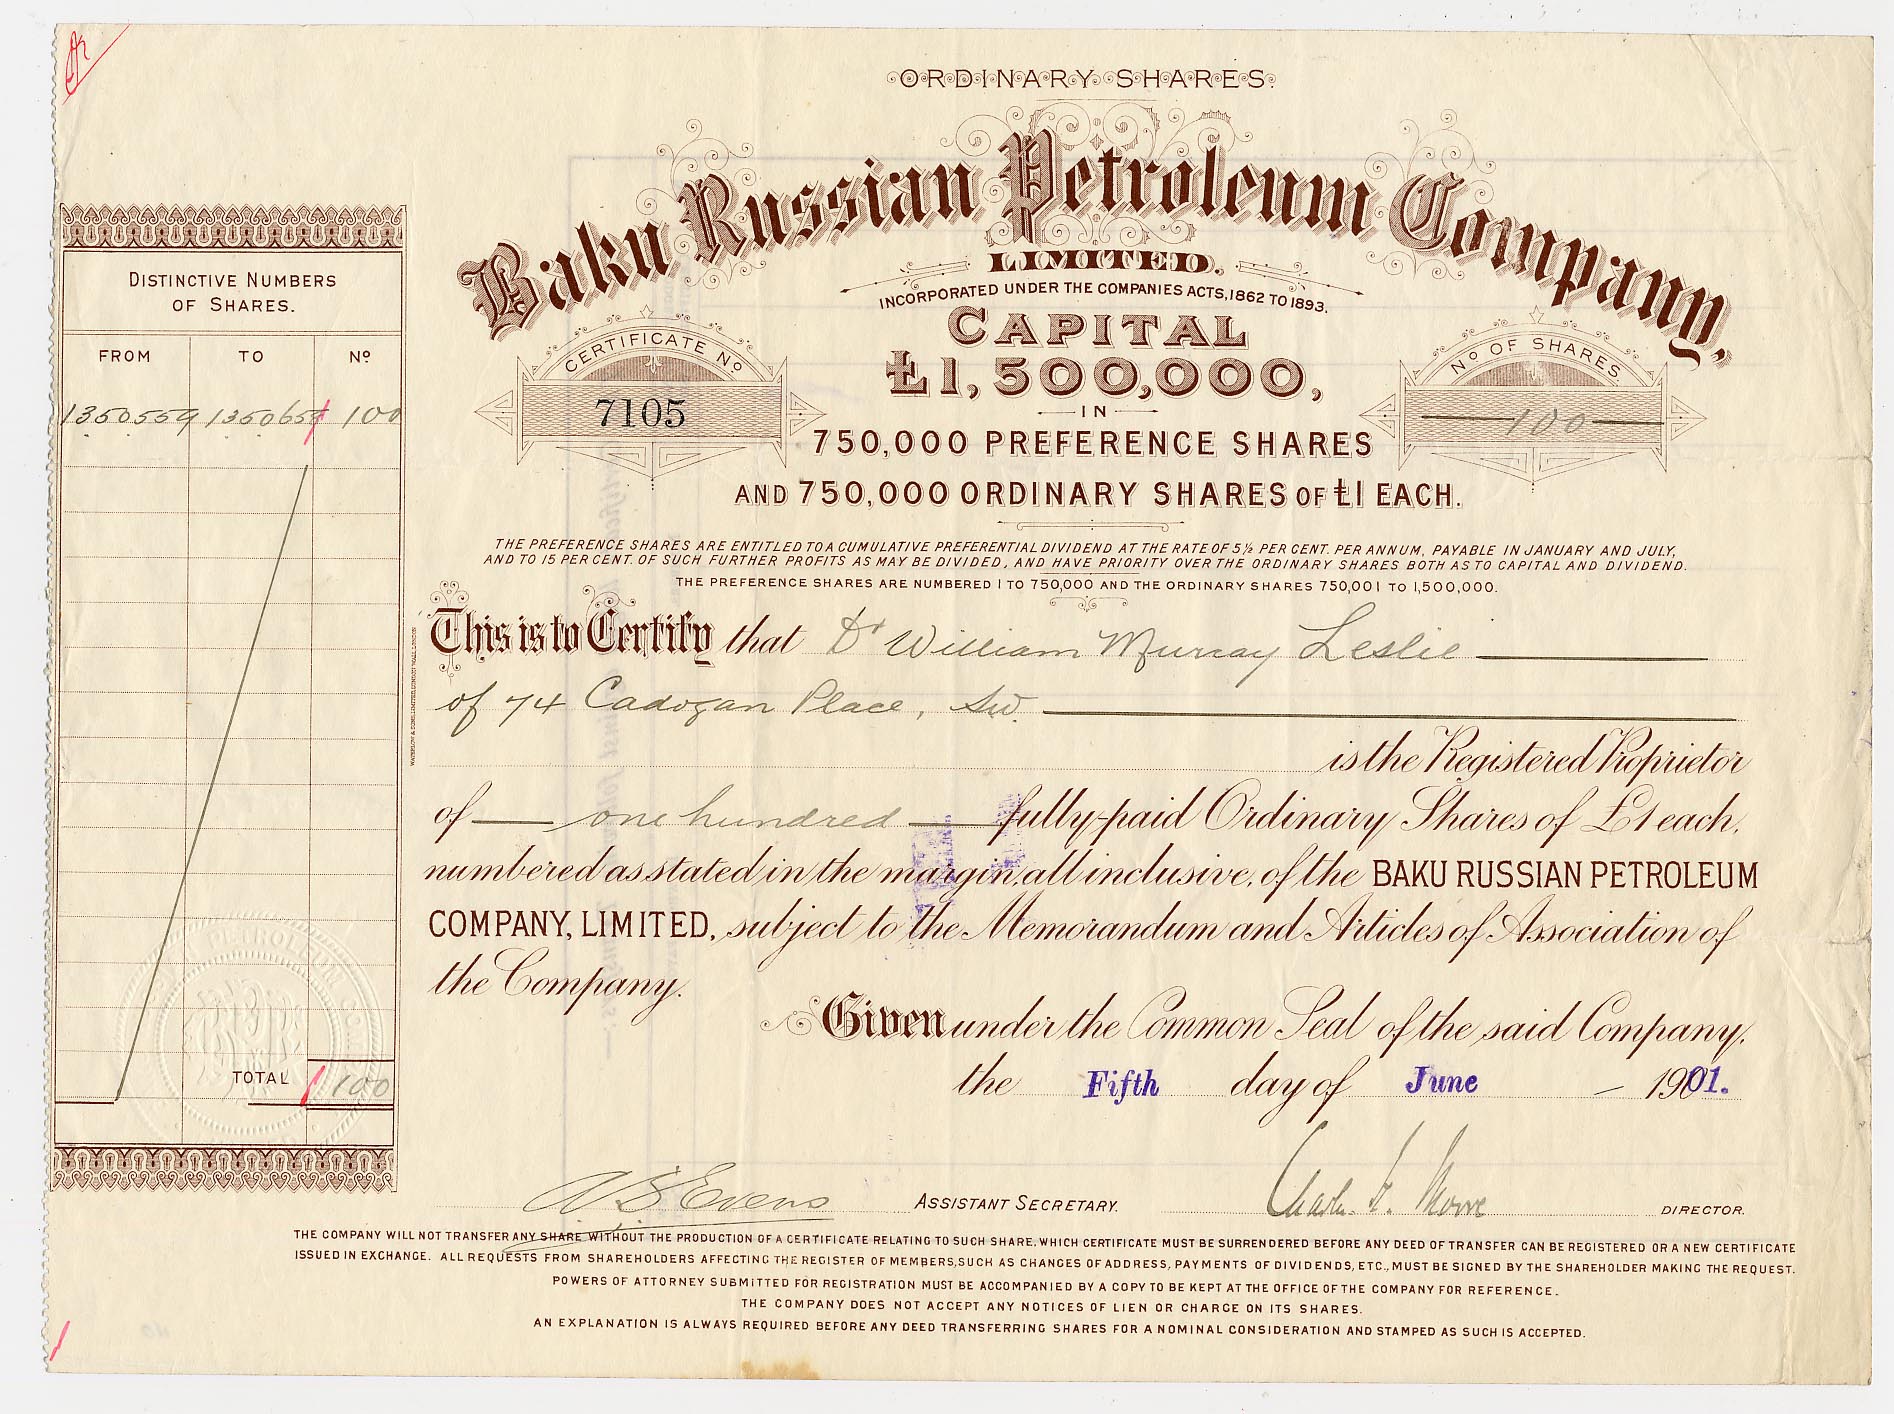 ORDINARY SHARES.
Baku Russian Petroleum Company,
LIMITED.
INCORPORATED UNDER THE COMPANIES ACTS, 1862 TO 1893.
CAPITAL
£1,500,000,
IN
750,000 PREFERENCE SHARES
AND 750,000 ORDINARY SHARES OF £1 EACH.
CERTIFICATE No
7105
No OF SHARES.
100
THE PREFERENCE SHARES ARE ENTITLED TO A CUMULATIVE PREFERENTIAL DIVIDEND AT THE RATE OF 5½ PER CENT. PER ANNUM, PAYABLE IN JANUARY AND JULY,
AND TO 15 PER CENT. OF SUCH FURTHER PROFITS AS MAY BE DIVIDED, AND HAVE PRIORITY OVER THE ORDINARY SHARES BOTH AS TO CAPITAL AND DIVIDEND.
THE PREFERENCE SHARES ARE NUMBERED 1 TO 750,000 AND THE ORDINARY SHARES 750,001 TO 1,500,000.
DISTINCTIVE NUMBERS
OF SHARES.
FROM TO No
1350559 1350658 100
TOTAL 100
This is to Certify that Dr William Murray Leslie
of 74 Cadogan Place, SW.
is the Registered Proprietor
of one hundred fully-paid Ordinary Shares of £1 each,
numbered as stated in the margin, all inclusive, of the BAKU RUSSIAN PETROLEUM
COMPANY, LIMITED, subject to the Memorandum and Articles of Association of
the Company.
Given under the Common Seal of the said Company,
the Fifth day of June 1901.
A B Evens ASSISTANT SECRETARY.
DIRECTOR.
THE COMPANY WILL NOT TRANSFER ANY SHARE WITHOUT THE PRODUCTION OF A CERTIFICATE RELATING TO SUCH SHARE, WHICH CERTIFICATE MUST BE SURRENDERED BEFORE ANY DEED OF TRANSFER CAN BE REGISTERED OR A NEW CERTIFICATE
ISSUED IN EXCHANGE. ALL REQUESTS FROM SHAREHOLDERS AFFECTING THE REGISTER OF MEMBERS, SUCH AS CHANGES OF ADDRESS, PAYMENTS OF DIVIDENDS, ETC., MUST BE SIGNED BY THE SHAREHOLDER MAKING THE REQUEST.
POWERS OF ATTORNEY SUBMITTED FOR REGISTRATION MUST BE ACCOMPANIED BY A COPY TO BE KEPT AT THE OFFICE OF THE COMPANY FOR REFERENCE.
THE COMPANY DOES NOT ACCEPT ANY NOTICES OF LIEN OR CHARGE ON ITS SHARES.
AN EXPLANATION IS ALWAYS REQUIRED BEFORE ANY DEED TRANSFERRING SHARES FOR A NOMINAL CONSIDERATION AND STAMPED AS SUCH IS ACCEPTED.